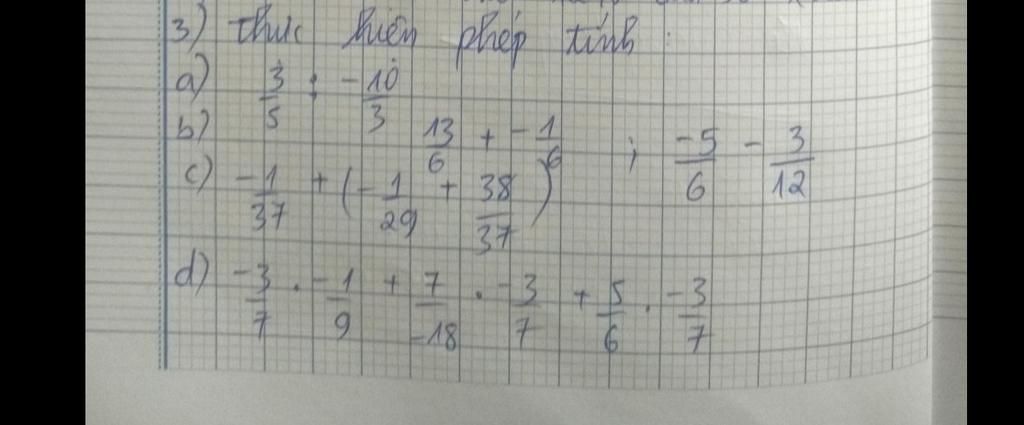 3) thực hiện phép tính:
a) 3/5 : -10/3
b) 13/6 + -1/6 ; -5/6 - 3/12
c) -1/37 + (-1/29 + 38/37)
d) -3/7 . -1/9 + 7/-18 . -3/7 + 5/6 . -3/7